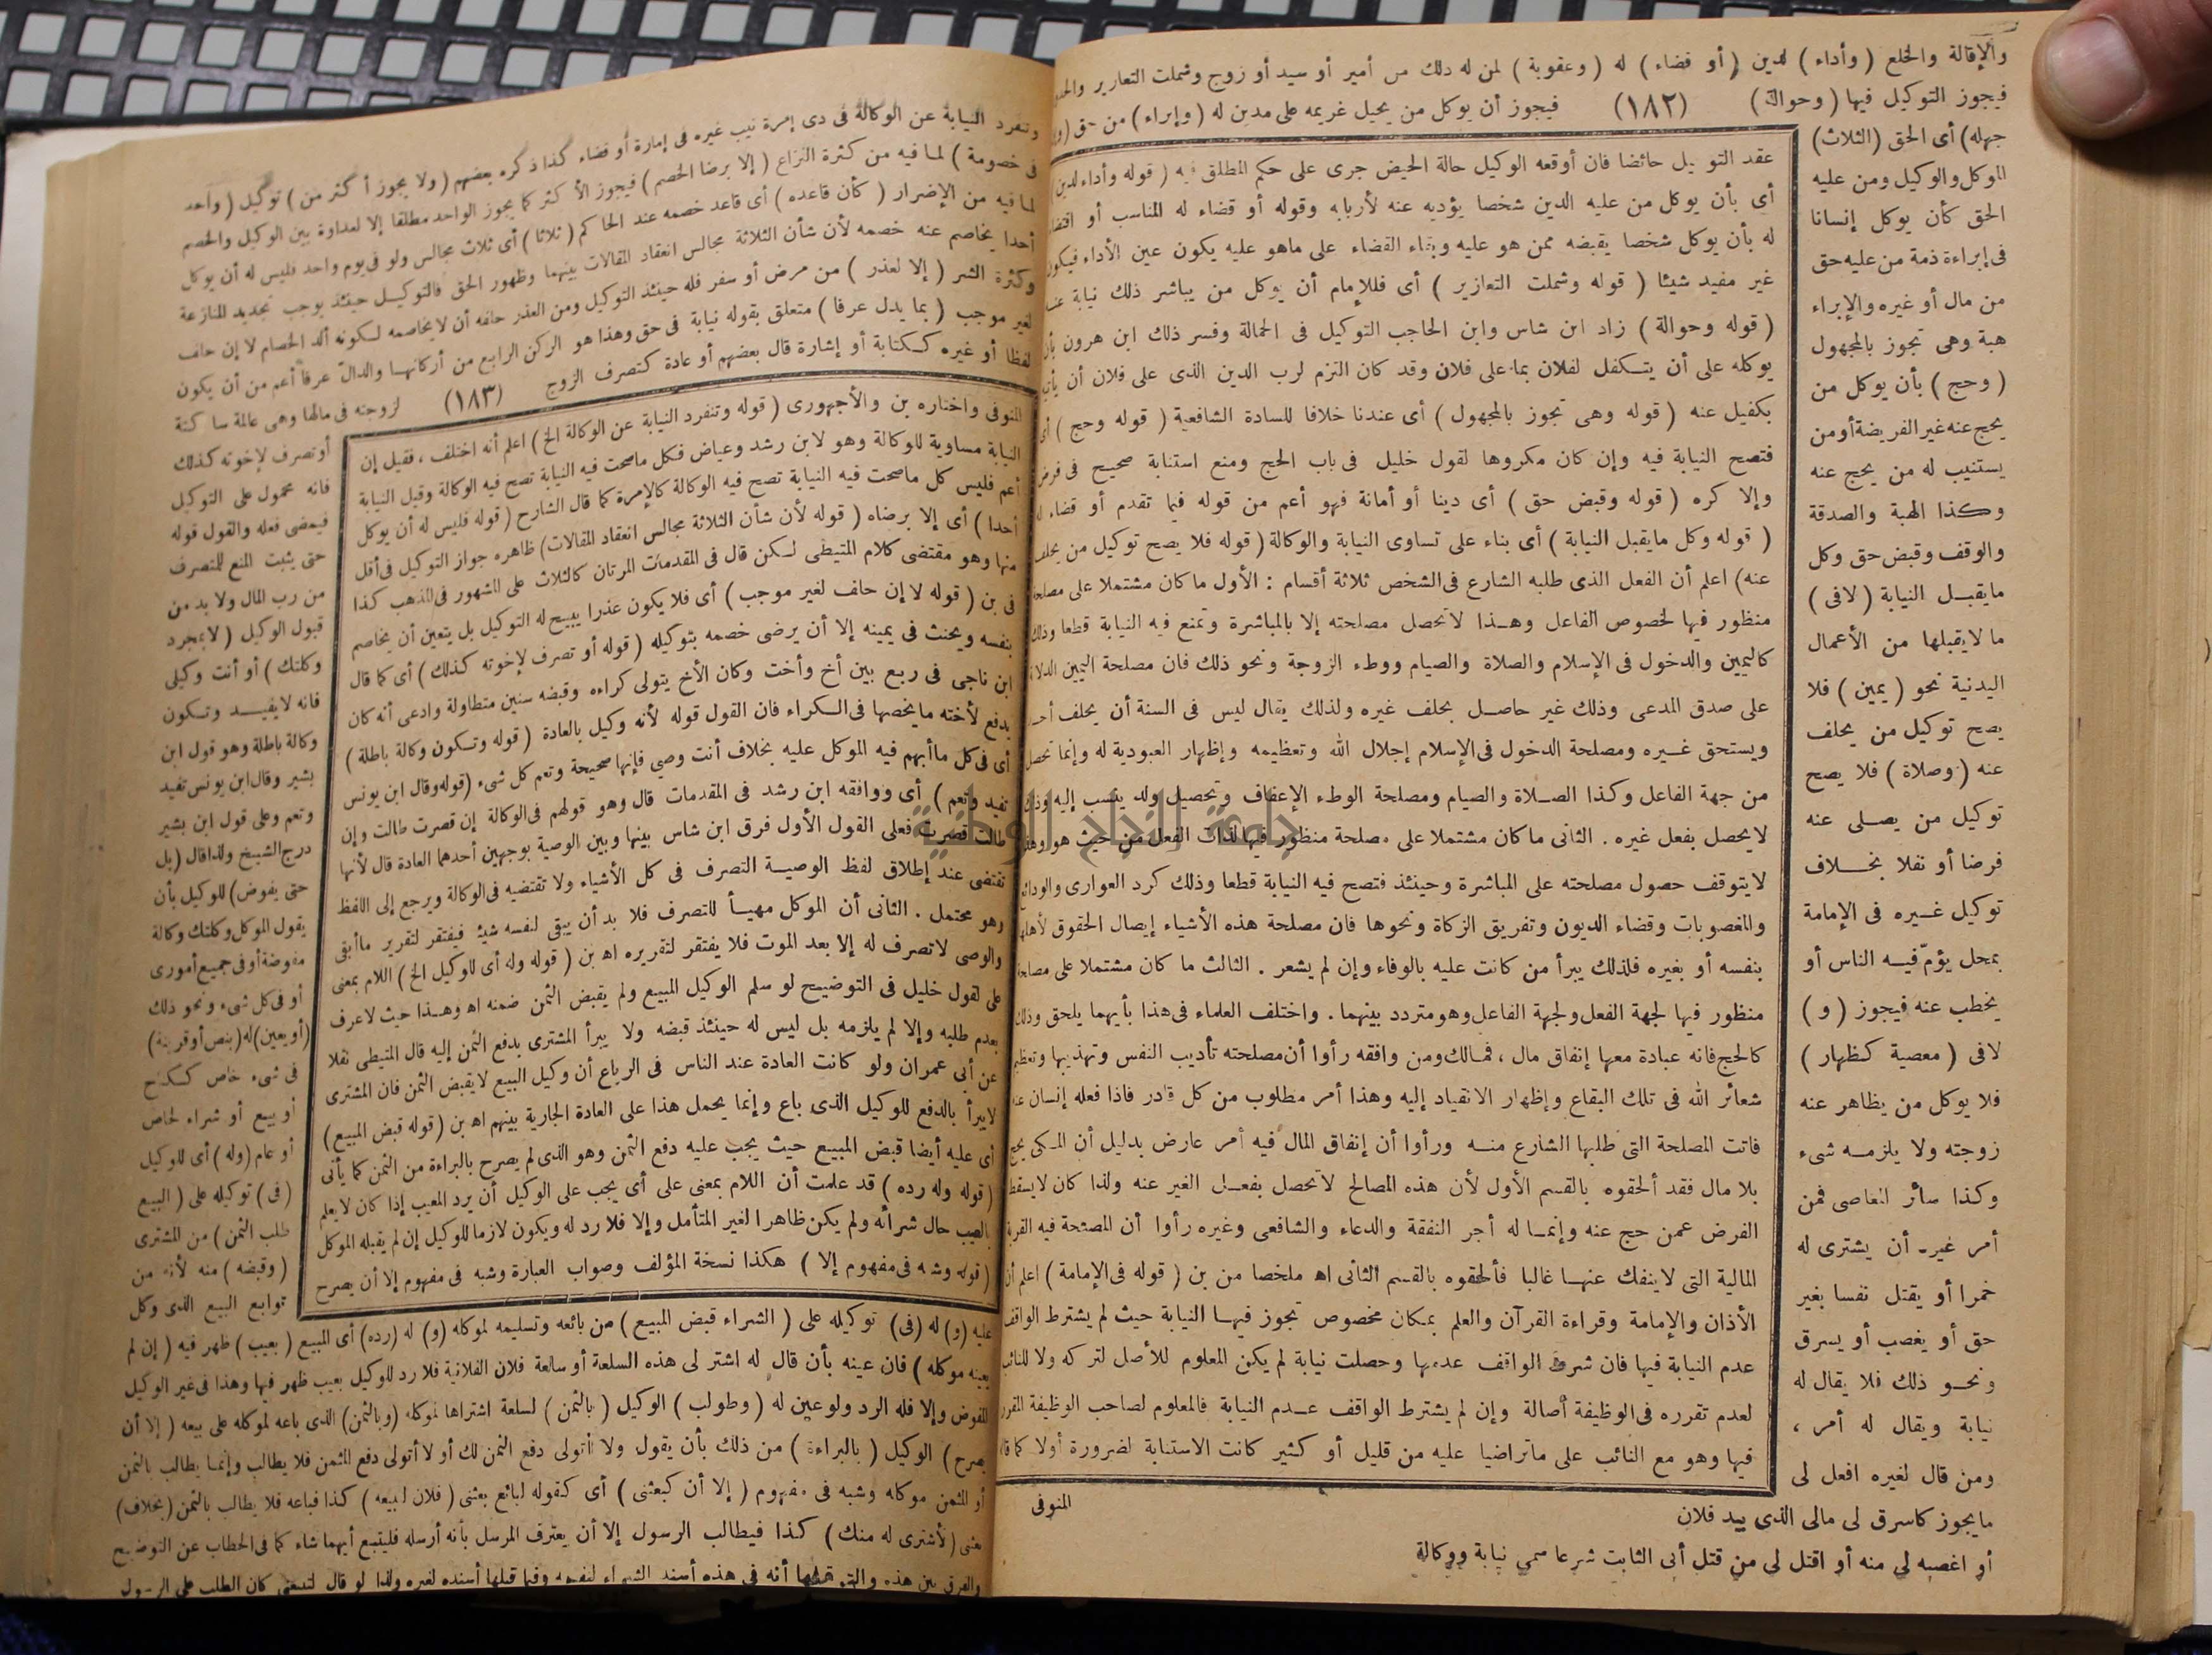 والإقالة والخلع (وأداء) لدين (أو قضاء) له (وعقوبة) لمن له ذلك من أمير أو سيد أو زوج وشملت التعازير
فيجوز التوكيل فيها (وحوالة) (١٨٢) فيجوز أن يوكل من يحيل غريمه على مدين له (وإبراء) من حق
جهله) أى الحق (الثلاث)
الموكل والوكيل ومن عليه
الحق كأن يوكل إنسانا
فى إبراء ذمة من عليه حق
من مال أو غيره والإبراء
هبة وهى تجوز بالمجهول
(وحج) بأن يوكل من
يحج عنه غير الفريضة أو من
يستنيب له من يحج عنه
وكذا الهبة والصدقة
والوقف وقبض حق وكل
مايقبل النيابة (لافى)
ما لايقبلها من الأعمال
البدنية نحو (يمين) فلا
يصح توكيل من يحلف
عنه (وصلاة) فلا يصح
توكيل من يصلى عنه
فرضا أو نفلا بخلاف
توكيل غيره فى الإمامة
بمحل يؤمّ فيه الناس أو
يخطب عنه فيجوز (و)
لافى (معصية كظهار)
فلا يوكل من يظاهر عنه
زوجته ولا يلزمه شىء
وكذا سائر المعاصى فمن
أمر غيره أن يشترى له
خمرا أو يقتل نفسا بغير
حق أو يغصب أو يسرق
ونحو ذلك فلا يقال له
نيابة ويقال له أمر ،
ومن قال لغيره افعل لى
مايجوز كاسرق لى مالى الذى بيد فلان
أو اغصبه لى منه أو اقتل لى من قتل أبى الثابت شرعا سمى نيابة ووكالة
عقد التوكيل حائضا فان أوقعه الوكيل حالة الحيض جرى على حكم المطلق فيه (قوله وأداء لدين)
أى بأن يوكل من عليه الدين شخصا يؤديه عنه لأربابه وقوله أو قضاء له المناسب أو
له بأن يوكل شخصا يقبضه ممن هو عليه وبقاء القضاء على ماهو عليه يكون عين الأداء فيكون
غير مفيد شيئا (قوله وشملت التعازير) أى فللإمام أن يوكل من يباشر ذلك نيابة عنه
(قوله وحوالة) زاد ابن شاس وابن الحاجب التوكيل فى الحمالة وفسر ذلك ابن هرون بأن
يوكله على أن يتكفل لفلان بما على فلان وقد كان التزم لرب الدين الذى على فلان أن يأتى
بكفيل عنه (قوله وهى تجوز بالمجهول) أى عندنا خلافا للسادة الشافعية (قوله وحج) أى
فتصح النيابة فيه وإن كان مكروها لقول خليل فى باب الحج ومنع استنابة صحيح فى فرض
وإلا كره (قوله وقبض حق) أى دينا أو أمانة فهو أعم من قوله فيما تقدم أو قضاء له
(قوله وكل مايقبل النيابة) أى بناء على تساوى النيابة والوكالة (قوله فلا يصح توكيل من يحلف
عنه) اعلم أن الفعل الذى طلبه الشارع فى الشخص ثلاثة أقسام : الأول ما كان مشتملا على مصلحة
منظور فيها لخصوص الفاعل وهذا لاتحصل مصلحته إلا بالمباشرة وتمنع فيه النيابة قطعا وذلك
كاليمين والدخول فى الإسلام والصلاة والصيام ووطء الزوجة ونحو ذلك فان مصلحة اليمين الدلالة
على صدق المدعى وذلك غير حاصل بحلف غيره ولذلك يقال ليس فى السنة أن يحلف أحد
ويستحق غيره ومصلحة الدخول فى الإسلام إجلال الله وتعظيمه وإظهار العبودية له وإنما تحصل
من جهة الفاعل وكذا الصلاة والصيام ومصلحة الوطء الإعفاف وتحصيل ولد ينسب إليه وذلك
لايحصل بفعل غيره . الثانى ما كان مشتملا على مصلحة منظور فيها لذات الفعل من حيث هو وهذا
لايتوقف حصول مصلحته على المباشرة وحينئذ فتصح فيه النيابة قطعا وذلك كرد العوارى والودائع
والمغصوبات وقضاء الديون وتفريق الزكاة ونحوها فان مصلحة هذه الأشياء إيصال الحقوق لأهلها
بنفسه أو بغيره فلذلك يبرأ من كانت عليه بالوفاء وإن لم يشعر . الثالث ما كان مشتملا على مصلحة
منظور فيها لجهة الفعل ولجهة الفاعل وهو متردد بينهما . واختلف العلماء فى هذا بأيهما يلحق وذلك
كالحج فانه عبادة معها إنفاق مال ، فمالك ومن وافقه رأوا أن مصلحته تأديب النفس وتهذيبها وتعظيم
شعائر الله فى تلك البقاع وإظهار الانقياد إليه وهذا أمر مطلوب من كل قادر فاذا فعله إنسان عنه
فاتت المصلحة التى طلبها الشارع منه ورأوا أن إنفاق المال فيه أمر عارض بدليل أن المكى يحج
بلا مال فقد ألحقوه بالقسم الأول لأن هذه المصالح لاتحصل بفعل الغير عنه ولذا كان لايسقط
الفرض عمن حج عنه وإنما له أجر النفقة والدعاء والشافعى وغيره رأوا أن المصلحة فيه القربة
المالية التى لاينفك عنها غالبا فألحقوه بالقسم الثانى اه ملخصا من بن (قوله فى الإمامة) اعلم أن
الأذان والإمامة وقراءة القرآن والعلم بمكان مخصوص تجوز فيها النيابة حيث لم يشترط الواقف
عدم النيابة فيها فان شرط الواقف عدمها وحصلت نيابة لم يكن المعلوم للأصل لتركه ولا للنائب
لعدم تقرره فى الوظيفة أصالة وإن لم يشترط الواقف عدم النيابة فالمعلوم لصاحب الوظيفة المقرر
فيها وهو مع النائب على ماتراضيا عليه من قليل أو كثير كانت الاستنابة لضرورة أولا كما قاله
المنوفى
وتنفرد النيابة عن الوكالة فى ذى إمرة نيب غيره فى إمارة أو قضاء كذا ذكره بعضهم (ولا يجوز أكثر من) توكيل (واحد
فى خصومة) لما فيه من كثرة النزاع (إلا برضا الخصم) فيجوز الأكثر كما يجوز الواحد مطلقا إلا لعداوة بين الوكيل والخصم
لما فيه من الإضرار (كأن قاعده) أى قاعد خصمه عند الحاكم (ثلاثا) أى ثلاث مجالس ولو فى يوم واحد فليس له أن يوكل
أحدا يخاصم عنه خصمه لأن شأن الثلاثة مجالس انعقاد المقالات بينهما وظهور الحق فالتوكيل حينئذ يوجب تجديد المنازعة
وكثرة الشر (إلا لعذر) من مرض أو سفر فله حينئذ التوكيل ومن العذر حلفه أن لايخاصمه لكونه ألد الخصام لا إن حلف
لغير موجب (بما يدل عرفا) متعلق بقوله نيابة فى حق وهذا هو الركن الرابع من أركانها والدالّ عرفا أعم من أن يكون
لفظا أو غيره ككتابة أو إشارة قال بعضهم أو عادة كتصرف الزوج (١٨٣) لزوجته فى مالها وهى عالمة ساكتة
أو تصرف لإخوته كذلك
فانه محمول على التوكيل
فيمضى فعله والقول قوله
حتى يثبت المنع للمتصرف
من رب المال ولا بد من
قبول الوكيل (لا بمجرد
وكلتك) أو أنت وكيلى
فانه لايفيد وتكون
وكالة باطلة وهو قول ابن
بشير وقال ابن يونس تفيد
وتعم وعلى قول ابن بشير
درج الشيخ ولذا قال (بل
حتى يفوض) للوكيل بأن
يقول الموكل وكلتك وكالة
مفوضة أو فى جميع أمورى
أو فى كل شىء ونحو ذلك
(أو يعين) له (بنص أو قرينة)
فى شىء خاص كنكاح
أو بيع أو شراء لخاص
أو عام (وله) أى للوكيل
(فى) توكيله على (البيع
طلب الثمن) من المشترى
(وقبضه) منه لأنه من
توابع البيع الذى وكل
المنوفى واختاره بن والأجهورى (قوله وتنفرد النيابة عن الوكالة الخ) اعلم أنه اختلف ، فقيل إن
النيابة مساوية للوكالة وهو لابن رشد وعياض فكل ماصحت فيه النيابة تصح فيه الوكالة وقيل النيابة
أعم فليس كل ماصحت فيه النيابة تصح فيه الوكالة كالإمرة كما قال الشارح (قوله فليس له أن يوكل
أحدا) أى إلا برضاه (قوله لأن شأن الثلاثة مجالس انعقاد المقالات) ظاهره جواز التوكيل فى أقل
منها وهو مقتضى كلام المتيطى لكن قال فى المقدمات المرتان كالثلاث على المشهور فى المذهب كذا
فى بن (قوله لا إن حلف لغير موجب) أى فلا يكون عذرا يبيح له التوكيل بل يتعين أن يخاصم
بنفسه ويحنث فى يمينه إلا أن يرضى خصمه بتوكيله (قوله أو تصرف لإخوته كذلك) أى كما قال
ابن ناجى فى ربع بين أخ وأخت وكان الأخ يتولى كراءه وقبضه سنين متطاولة وادعى أنه كان
يدفع لأخته مايخصها فى الكراء فان القول قوله لأنه وكيل بالعادة (قوله وتكون وكالة باطلة)
أى فى كل ما أبهم فيه الموكل عليه بخلاف أنت وصي فإنها صحيحة وتعم كل شىء (قوله وقال ابن يونس
تفيد وتعم) أى ووافقه ابن رشد فى المقدمات قال وهو قولهم فى الوكالة إن قصرت طالت وإن
طالت قصرت فعلى القول الأول فرق ابن شاس بينها وبين الوصية بوجهين أحدهما العادة قال لأنها
تقتضى عند إطلاق لفظ الوصية التصرف فى كل الأشياء ولا تقتضيه فى الوكالة ويرجع إلى اللفظ
وهو محتمل . الثانى أن الموكل مهيأ للتصرف فلا بد أن يبقى لنفسه شيئا فيفتقر لتقرير ماأبقى
والوصى لاتصرف له إلا بعد الموت فلا يفتقر لتقريره اه بن (قوله وله أى للوكيل الخ) اللام بمعنى
على لقول خليل فى التوضيح لو سلم الوكيل المبيع ولم يقبض الثمن ضمنه اه وهذا حيث لاعرف
بعدم طلبه وإلا لم يلزمه بل ليس له حينئذ قبضه ولا يبرأ المشترى بدفع الثمن إليه قال المتيطى نقلا
عن أبى عمران ولو كانت العادة عند الناس فى الرباع أن وكيل البيع لايقبض الثمن فان المشترى
لايبرأ بالدفع للوكيل الذى باع وإنما يحمل هذا على العادة الجارية بينهم اه بن (قوله قبض المبيع)
أى عليه أيضا قبض المبيع حيث يجب عليه دفع الثمن وهو الذى لم يصرح بالبراءة من الثمن كما يأتى
(قوله وله رده) قد علمت أن اللام بمعنى على أى يجب على الوكيل أن يرد المعيب إذا كان لايعلم
بالعيب حال شرائه ولم يكن ظاهرا لغير المتأمل وإلا فلا رد له ويكون لازما للوكيل إن لم يقبله الموكل
(قوله وشبه فى مفهوم إلا) هكذا نسخة المؤلف وصواب العبارة وشبه فى مفهوم إلا أن يصرح
عليه (و) له (فى) توكيله على (الشراء قبض المبيع) من بائعه وتسليمه لموكله (و) له (رده) أى المبيع (بعيب) ظهر فيه (إن لم
يعينه موكله) فان عينه بأن قال له اشتر لى هذه السلعة أو سلعة فلان الفلانية فلا رد للوكيل بعيب ظهر فيها وهذا فى غير الوكيل
المفوض وإلا فله الرد ولو عين له (وطولب) الوكيل (بالثمن) لسلعة اشتراها لموكله (وبالثمن) الذى باعه لموكله على بيعه (إلا أن
يصرح) الوكيل (بالبراءة) من ذلك بأن يقول ولا أتولى دفع الثمن لك أو لا أتولى دفع المثمن فلا يطالب وإنما يطالب بالثمن
أو المثمن موكله وشبه فى مفهوم (إلا أن كبعثنى) أى كقوله لبائع بعثنى (فلان لبيعه) كذا فباعه فلا يطالب بالثمن (بخلاف)
بعثنى (لأشترى له منك) كذا فيطالب الرسول إلا أن يعترف المرسل بأنه أرسله فليتبع أيهما شاء كما فى الحطاب عن التوضيح
والفرق بين هذه والتى قبلها أنه فى هذه أسند الشراء لنفسه وفيما قبلها أسنده لغيره ولذا لو قال
جامعة النجاح الوطنية